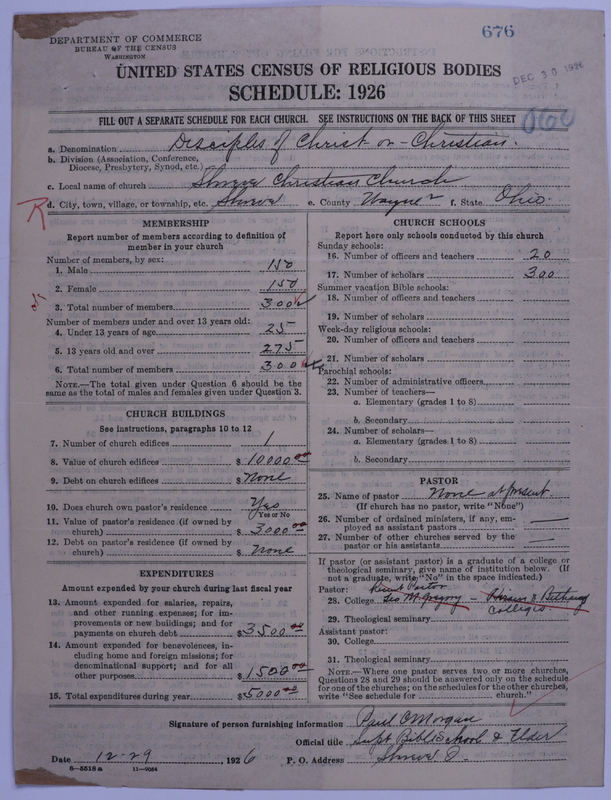 676
DEPARTMENT OF COMMERCE
BUREAU OF THE CENSUS
WASHINGTON
UNITED STATES CENSUS OF RELIGIOUS BODIES
DEC 30 1926
SCHEDULE: 1926
FILL OUT A SEPARATE SCHEDULE FOR EACH CHURCH. SEE INSTRUCTIONS ON THE BACK OF THIS SHEET
a. Denomination Disciples of Christ or Christian.
b. Division (Association, Conference, Diocese, Presbytery, Synod, etc.)
c. Local name of church Shreve Christian Church
d. City, town, village, or township, etc. Shreve e. County Wayne f. State Ohio.
R
MEMBERSHIP
Report number of members according to definition of member in your church
Number of members, by sex:
1. Male 150
2. Female 150
3. Total number of members 300
Number of members under and over 13 years old:
4. Under 13 years of age 25
5. 13 years old and over 275
6. Total number of members 300
NOTE.—The total given under Question 6 should be the
same as the total of males and females given under Question 3.
CHURCH BUILDINGS
See instructions, paragraphs 10 to 12
7. Number of church edifices 1
8. Value of church edifices $ 10000.00
9. Debt on church edifices $ None
10. Does church own pastor's residence? Yes
Yes or No
11. Value of pastor's residence (if owned by
church) $ 3000.00
12. Debt on pastor's residence (if owned by
church) $ None
EXPENDITURES
Amount expended by your church during last fiscal year
13. Amount expended for salaries, repairs,
and other running expenses; for im-
provements or new buildings; and for
payments on church debt $ 3500.00
14. Amount expended for benevolences, in-
cluding home and foreign missions; for
denominational support; and for all
other purposes $ 1500.00
15. Total expenditures during year $ 5000.00
CHURCH SCHOOLS
Report here only schools conducted by this church
Sunday schools:
16. Number of officers and teachers 20
17. Number of scholars 300
Summer vacation Bible schools:
18. Number of officers and teachers
19. Number of scholars
Week-day religious schools:
20. Number of officers and teachers
21. Number of scholars
Parochial schools:
22. Number of administrative officers
23. Number of teachers—
a. Elementary (grades 1 to 8)
b. Secondary
24. Number of scholars—
a. Elementary (grades 1 to 8)
b. Secondary
PASTOR
25. Name of pastor None at present.
(If church has no pastor, write "None")
26. Number of ordained ministers, if any, em-
ployed as assistant pastors —
27. Number of other churches served by the
pastor or his assistants —
If pastor (or assistant pastor) is a graduate of a college or
theological seminary, give name of institution below. (If
not a graduate, write "No" in the space indicated.)
Pastor: Pastor
28. College Geo M Gregory - Hiram & Bethany
Colleges
29. Theological seminary
Assistant pastor:
30. College
31. Theological seminary
NOTE.—Where one pastor serves two or more churches,
Questions 28 and 29 should be answered only on the schedule
for one of the churches; on the schedules for the other churches,
write "See schedule for church."
Signature of person furnishing information Paul C Morgan
Official title Supt Bible School & Elder
Date 12-29, 1926 P. O. Address Shreve O.
8—5518 a 11—9054